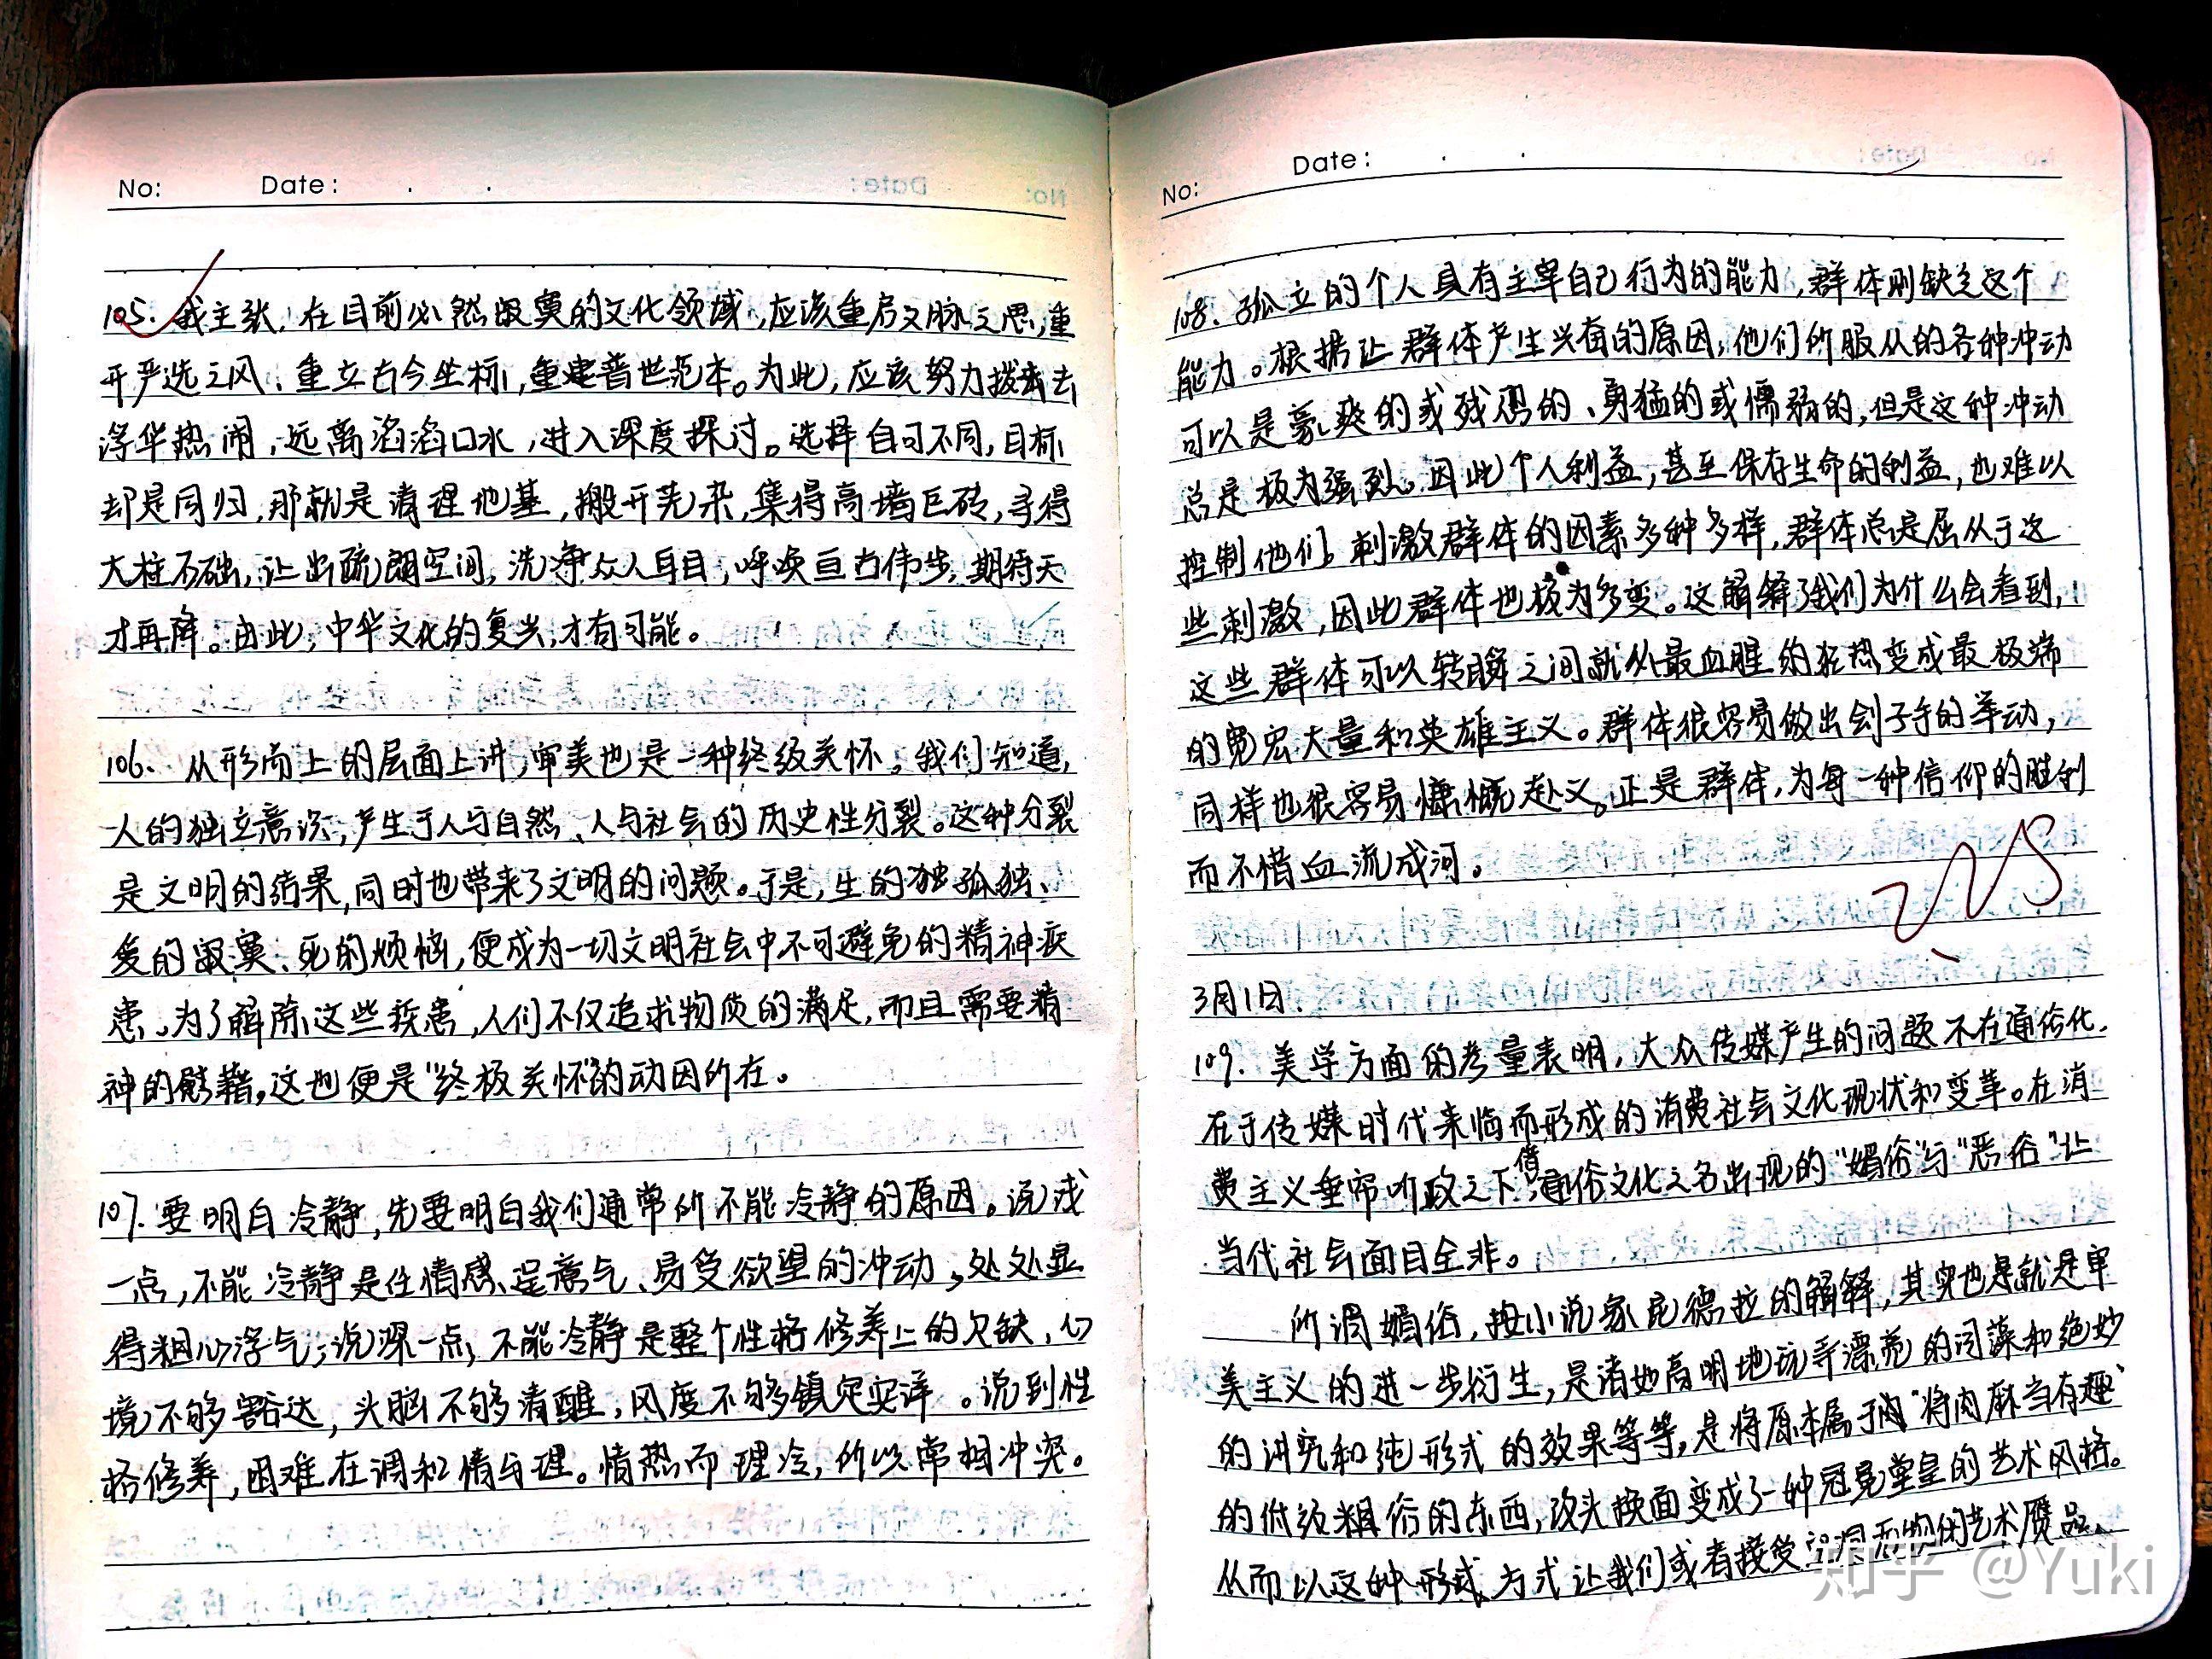 No: Date: . .
105. 我主张，在目前必然寂寞的文化领域，应该重启文脉之思，重
开严选之风、重立古今坐标，重建普世范本。为此，应该努力拨去
浮华热闹，远离滔滔口水，进入深度探讨。选择自可不同，目标
却是同归，那就是清理地基，搬开芜杂，集得高墙巨砖，寻得
大柱石础，让出疏朗空间，洗净众人耳目，呼唤亘古伟步，期待天
才再降。由此，中华文化的复兴，才有可能。
106、从形而上的层面上讲，审美也是一种终级关怀。我们知道，
人的独立意识，产生于人与自然、人与社会的历史性分裂。这种分裂
是文明的结果，同时也带来了文明的问题。于是，生的独孤独、
爱的寂寞、死的烦恼，便成为一切文明社会中不可避免的精神疾
患。为了解除这些疾患，人们不仅追求物质的满足，而且需要精
神的慰藉。这也便是“终极关怀”的动因所在。
107. 要明白冷静，先要明白我们通常所不能冷静的原因。说浅
一点，不能冷静是任情感、逞意气、易受欲望的冲动，处处显
得粗心浮气；说深一点，不能冷静是整个性格修养上的欠缺，心
境不够豁达，头脑不够清醒，风度不够镇定安详。说到性
格修养，困难在调和情与理。情热而理冷，所以常相冲突。
No: Date: . .
108、孤立的个人具有主宰自己行为的能力，群体则缺乏这个
能力。根据让群体产生兴奋的原因，他们所服从的各种冲动
可以是豪爽的或残忍的、勇猛的或懦弱的，但是这种冲动
总是极为强烈。因此个人利益，甚至保存生命的利益，也难以
控制他们。刺激群体的因素多种多样，群体总是屈从于这
些刺激，因此群体也极为多变。这解释了我们为什么会看到，
这些群体可以转瞬之间就从最血腥的狂热变成最极端
的宽宏大量和英雄主义。群体很容易做出刽子手的举动，
同样也很容易慷慨赴义。正是群体，为每一种信仰的胜利
而不惜血流成河。
3月1日.
109. 美学方面的考量表明，大众传媒产生的问题不在通俗化，
在于传媒时代来临而形成的消费社会文化现状和变革。在消
费主义垂帘听政之下，借通俗文化之名出现的“媚俗”与“恶俗”让
当代社会面目全非。
所谓媚俗，按小说家昆德拉的解释，其实也是就是审
美主义的进一步衍生，是诸如高明地玩弄漂亮的词藻和绝妙
的讲究和纯形式的效果等等，是将原本属于肉“将肉麻当有趣”
的低级粗俗的东西，改头换面变成了一种冠冕堂皇的艺术风格。
从而以这种形式、方式让我们或者接受空洞无物的艺术赝品、
知乎 @Yuki